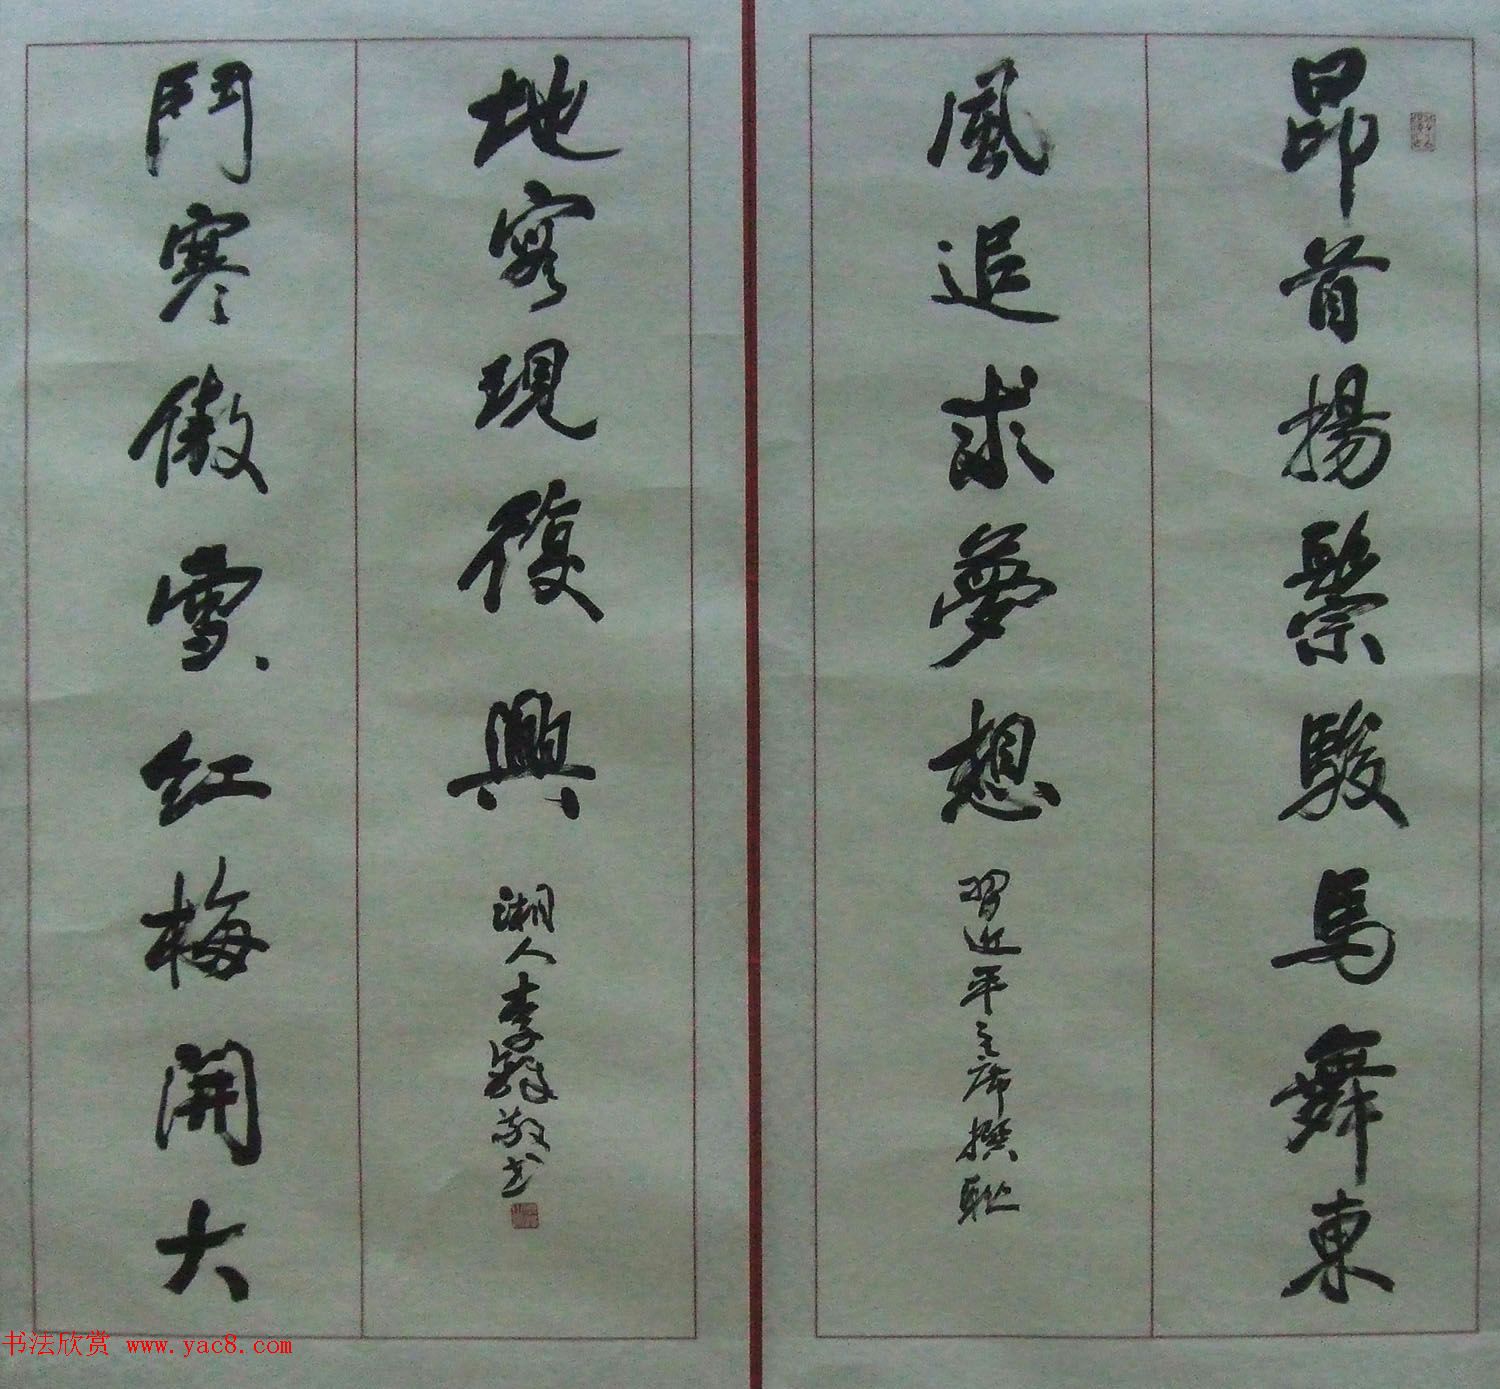 昂首揚鬃駿馬舞東
風追求夢想
習近平主席撰聯
鬥寒傲雪红梅開大
地容現復興
湘人李敬书
书法欣赏 www.yac8.com